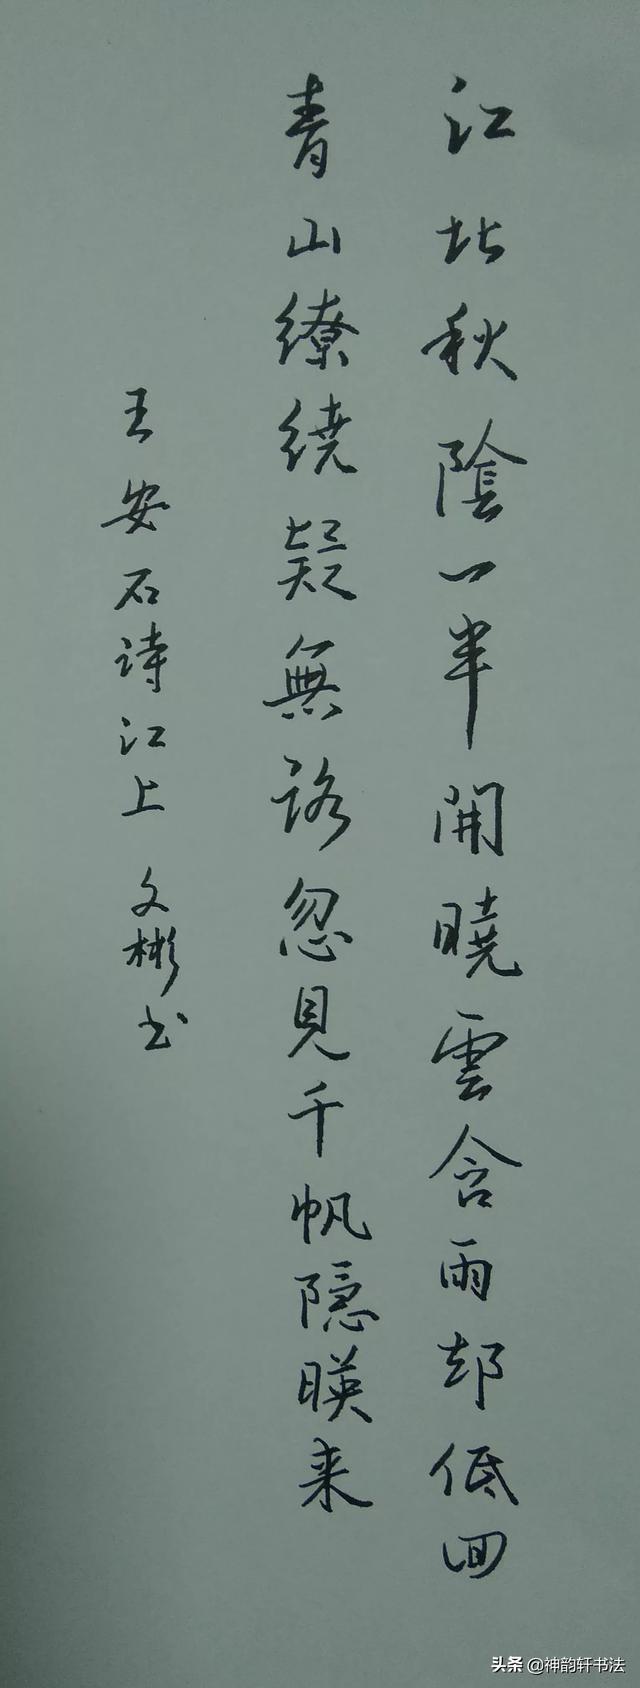 江北秋陰一半開曉雲含雨却低回
青山繚绕疑無路忽見千帆隱暎来
王安石诗江上 文彬书
头条 @神韵轩书法